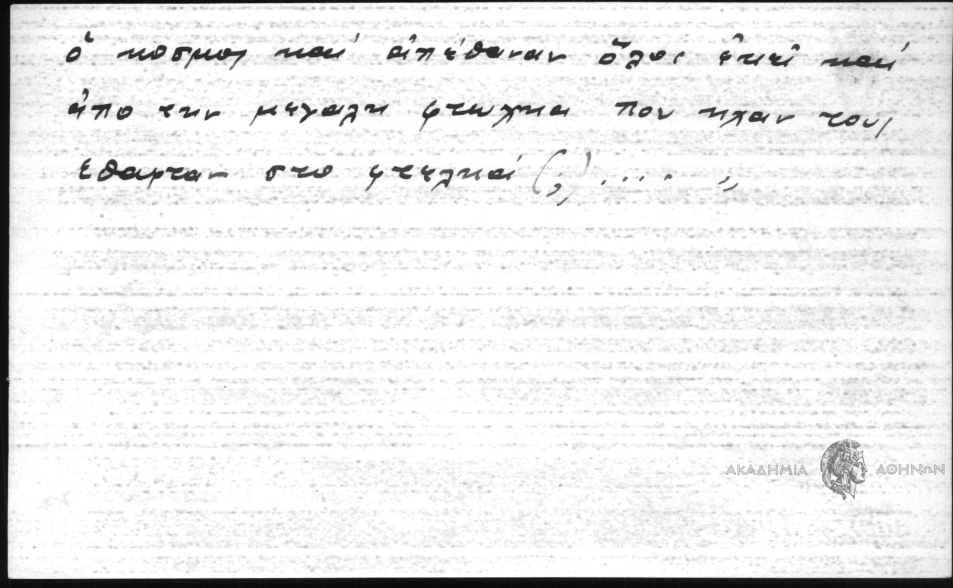 ὁ κοσμος καί ἀπέθαναν ὅλοι ἐκεῖ καί
ἀπο την μεγαλη φτωχεια που ηχαν τους
εθαφταν στο φτελκαί (;) .... ,,
ΑΚΑΔΗΜΙΑ ΑΘΗΝΩΝ